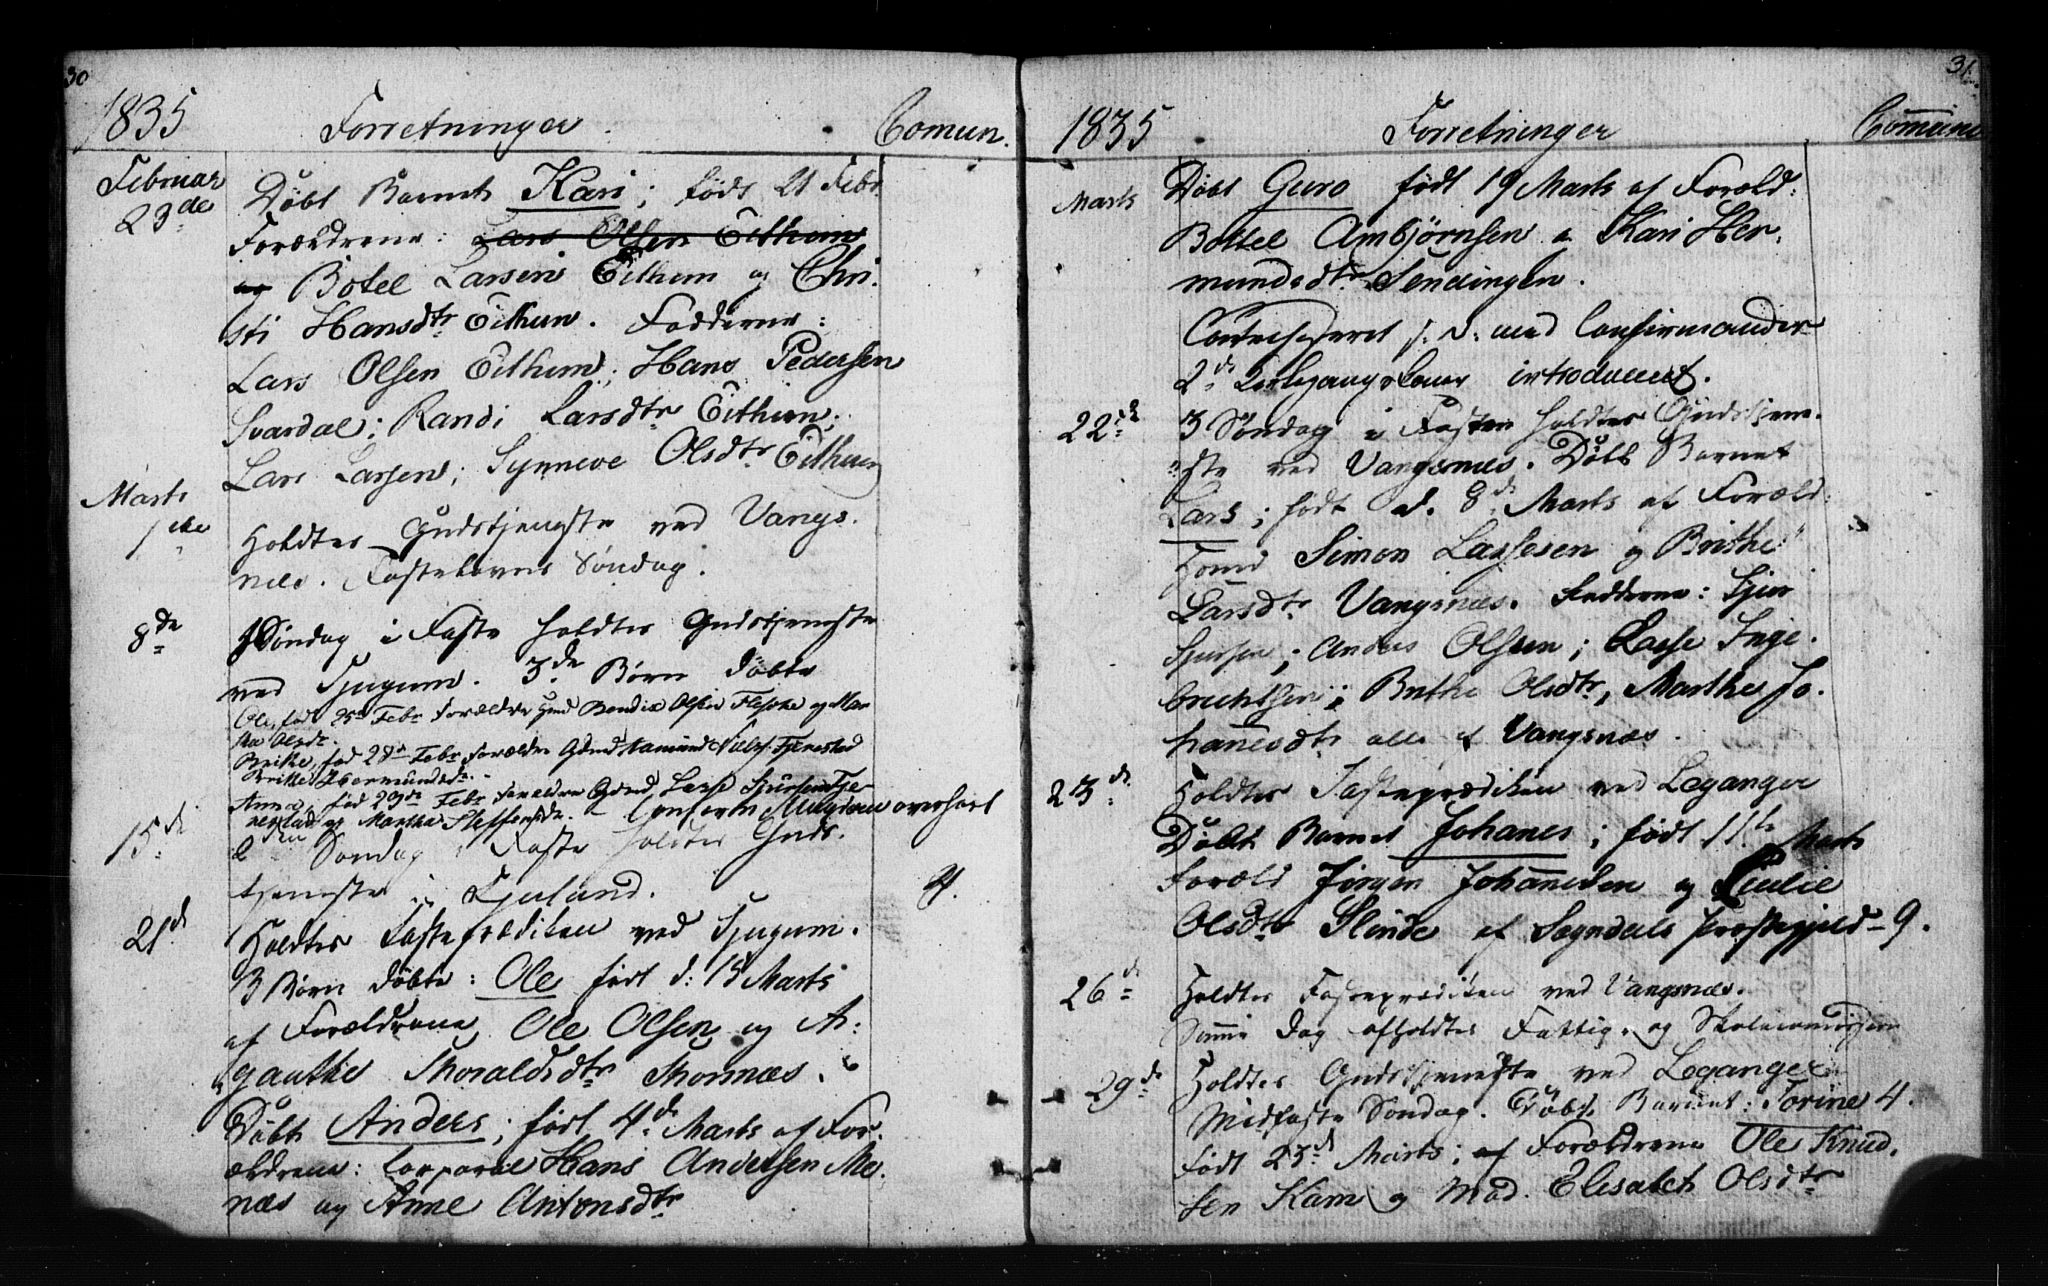 30
1835 Forretninger. Comun.
Februar Døbt Barnet Kari; født 21 Febr.
23de Forældrene: Lars Olsen Eithum
Botel Larsen Eithum og Chri-
sti Hansdtr Eithun. Fadderne:
Lars Olsen Eithum; Hans Pedersen
Svardal; Randi Larsdtr Eithum;
Lars Larsen; Synneve Olsdtr Eithum
Marts
1ste Holdtes Gudstjeneste ved Vangs-
næs. Fastelavns Søndag.
8de 1 Søndag i Faste holdtes Gudstjeneste
ved Tjugum. 3de Børn døbte
Ole, født 25 Febr Forældre Gmd Bendix Olsen Flesche og Mar
tha Olsdtr.
Brithe, fød 28de Febr Forældre Gdmd Aamund Niels. Tjenestad
Brithe Hermundsdr.
Anna, fød 23de Febr Forældre Gdmd Lasse Sjursen Tje-
nestad og Martha Steffensdr. - Conform Ungdom overhørt
15de 2den Søndag i Faste holdtes Guds-
tjeneste i Fjerland. 4.
21de Holdtes Fasteprædiken ved Tjugum.
3 Børn døbte: Ole født d: 15 Marts
af Forældrene Ole Olsen og A-
gauthe Thoraldsdtr Thornæs.
Døbt Anders; født 4de Marts af For-
ældrene: Corporal Hans Andersen Me-
næs og Anne Antonsdtr
31.
1835 Forretninger Comune
Marts Døbt Guro født 19 Marts af Foræld:
Bottel Ambjørnsen & Kari Her-
mundsdtr Sendingen.
Catechiseret s. d. med Confirmander
2de Kirkegangskoner introduceret.
22de 3 Søndag i Fasten holdtes Gudstjene-
ste ved Vangsnæs. Døbt Barnet
Lars; født d. 8de Marts af Foræld:
Gmd Simon Lassesen og Brithe
Larsdtr Vangsnæs. Fadderne: Sjur
Sjursen; Anders Olsen; Lasse Inge-
brichtsen; Brithe Olsdtr, Marthe Jo-
hannesdtr alle af Vangsnæs.
23de Holdtes Fasteprædiken ved Leganger
Døbt Barnet Johanes; født 11te Marts
Foræld Jørgen Johannesen og Cecilie
Olsdtr Slinde af Sogndals Præstegjeld - 9.
26de Holdtes Fasteprædiken ved Vangsnæs.
Samme Dag afholdtes Fattig- og Skolecommission
29de Holdtes Gudstjeneste ved Leganger
Midfaste Søndag. Døbt Barnet: Torine 4.
født 23de Marts; af Forældrene Ole Knud-
sen Kam og Mad. Elisabet Olsdtr